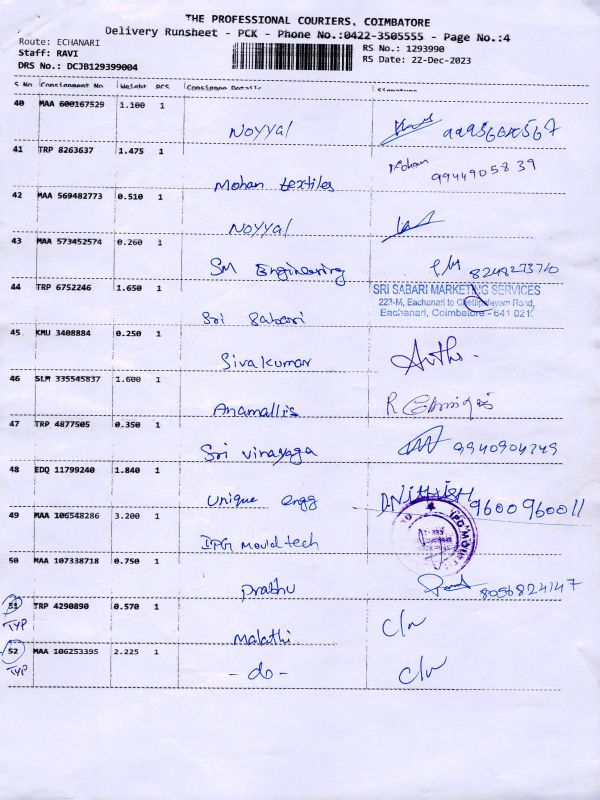 THE PROFESSIONAL COURIERS, COIMBATORE
Delivery Runsheet - PCK - Phone No.:0422-3505555 - Page No.:4
Route: ECHANARI
RS No.: 1293990
Staff: RAVI
RS Date: 22-Dec-2023
DRS No.: DCJB129399004
S No Consignment No Weight PCS Consignee Details Signature
40 MAA 600167529 1.100 1
Noyyal
41 TRP 8263637 1.475 1
Mohan textiles Mohan 9944905839
42 MAA 569482773 0.510 1
Noyyal
43 MAA 573452574 0.260 1
SM Engineering
44 TRP 6752246 1.650 1
SRI SABARI MARKETING SERVICES
223-M, Eachanari to Chettipalayam Road,
Eachanari, Coimbatore - 641 021.
Sri Sabari
45 KMU 3408884 0.250 1
Sivakumar
46 SLM 335545837 1.600 1
Anamallis
47 TRP 4877505 0.350 1
Sri vinayaga
48 EDQ 11799240 1.840 1
unique engg NITHISH 9600960011
49 MAA 106548286 3.200 1
IPG mouldtech
50 MAA 107338718 0.750 1
Prabhu 8056824147
51 TRP 4290890 0.570 1
TYP
Malathi
52 MAA 106253395 2.225 1
TYP
- do -